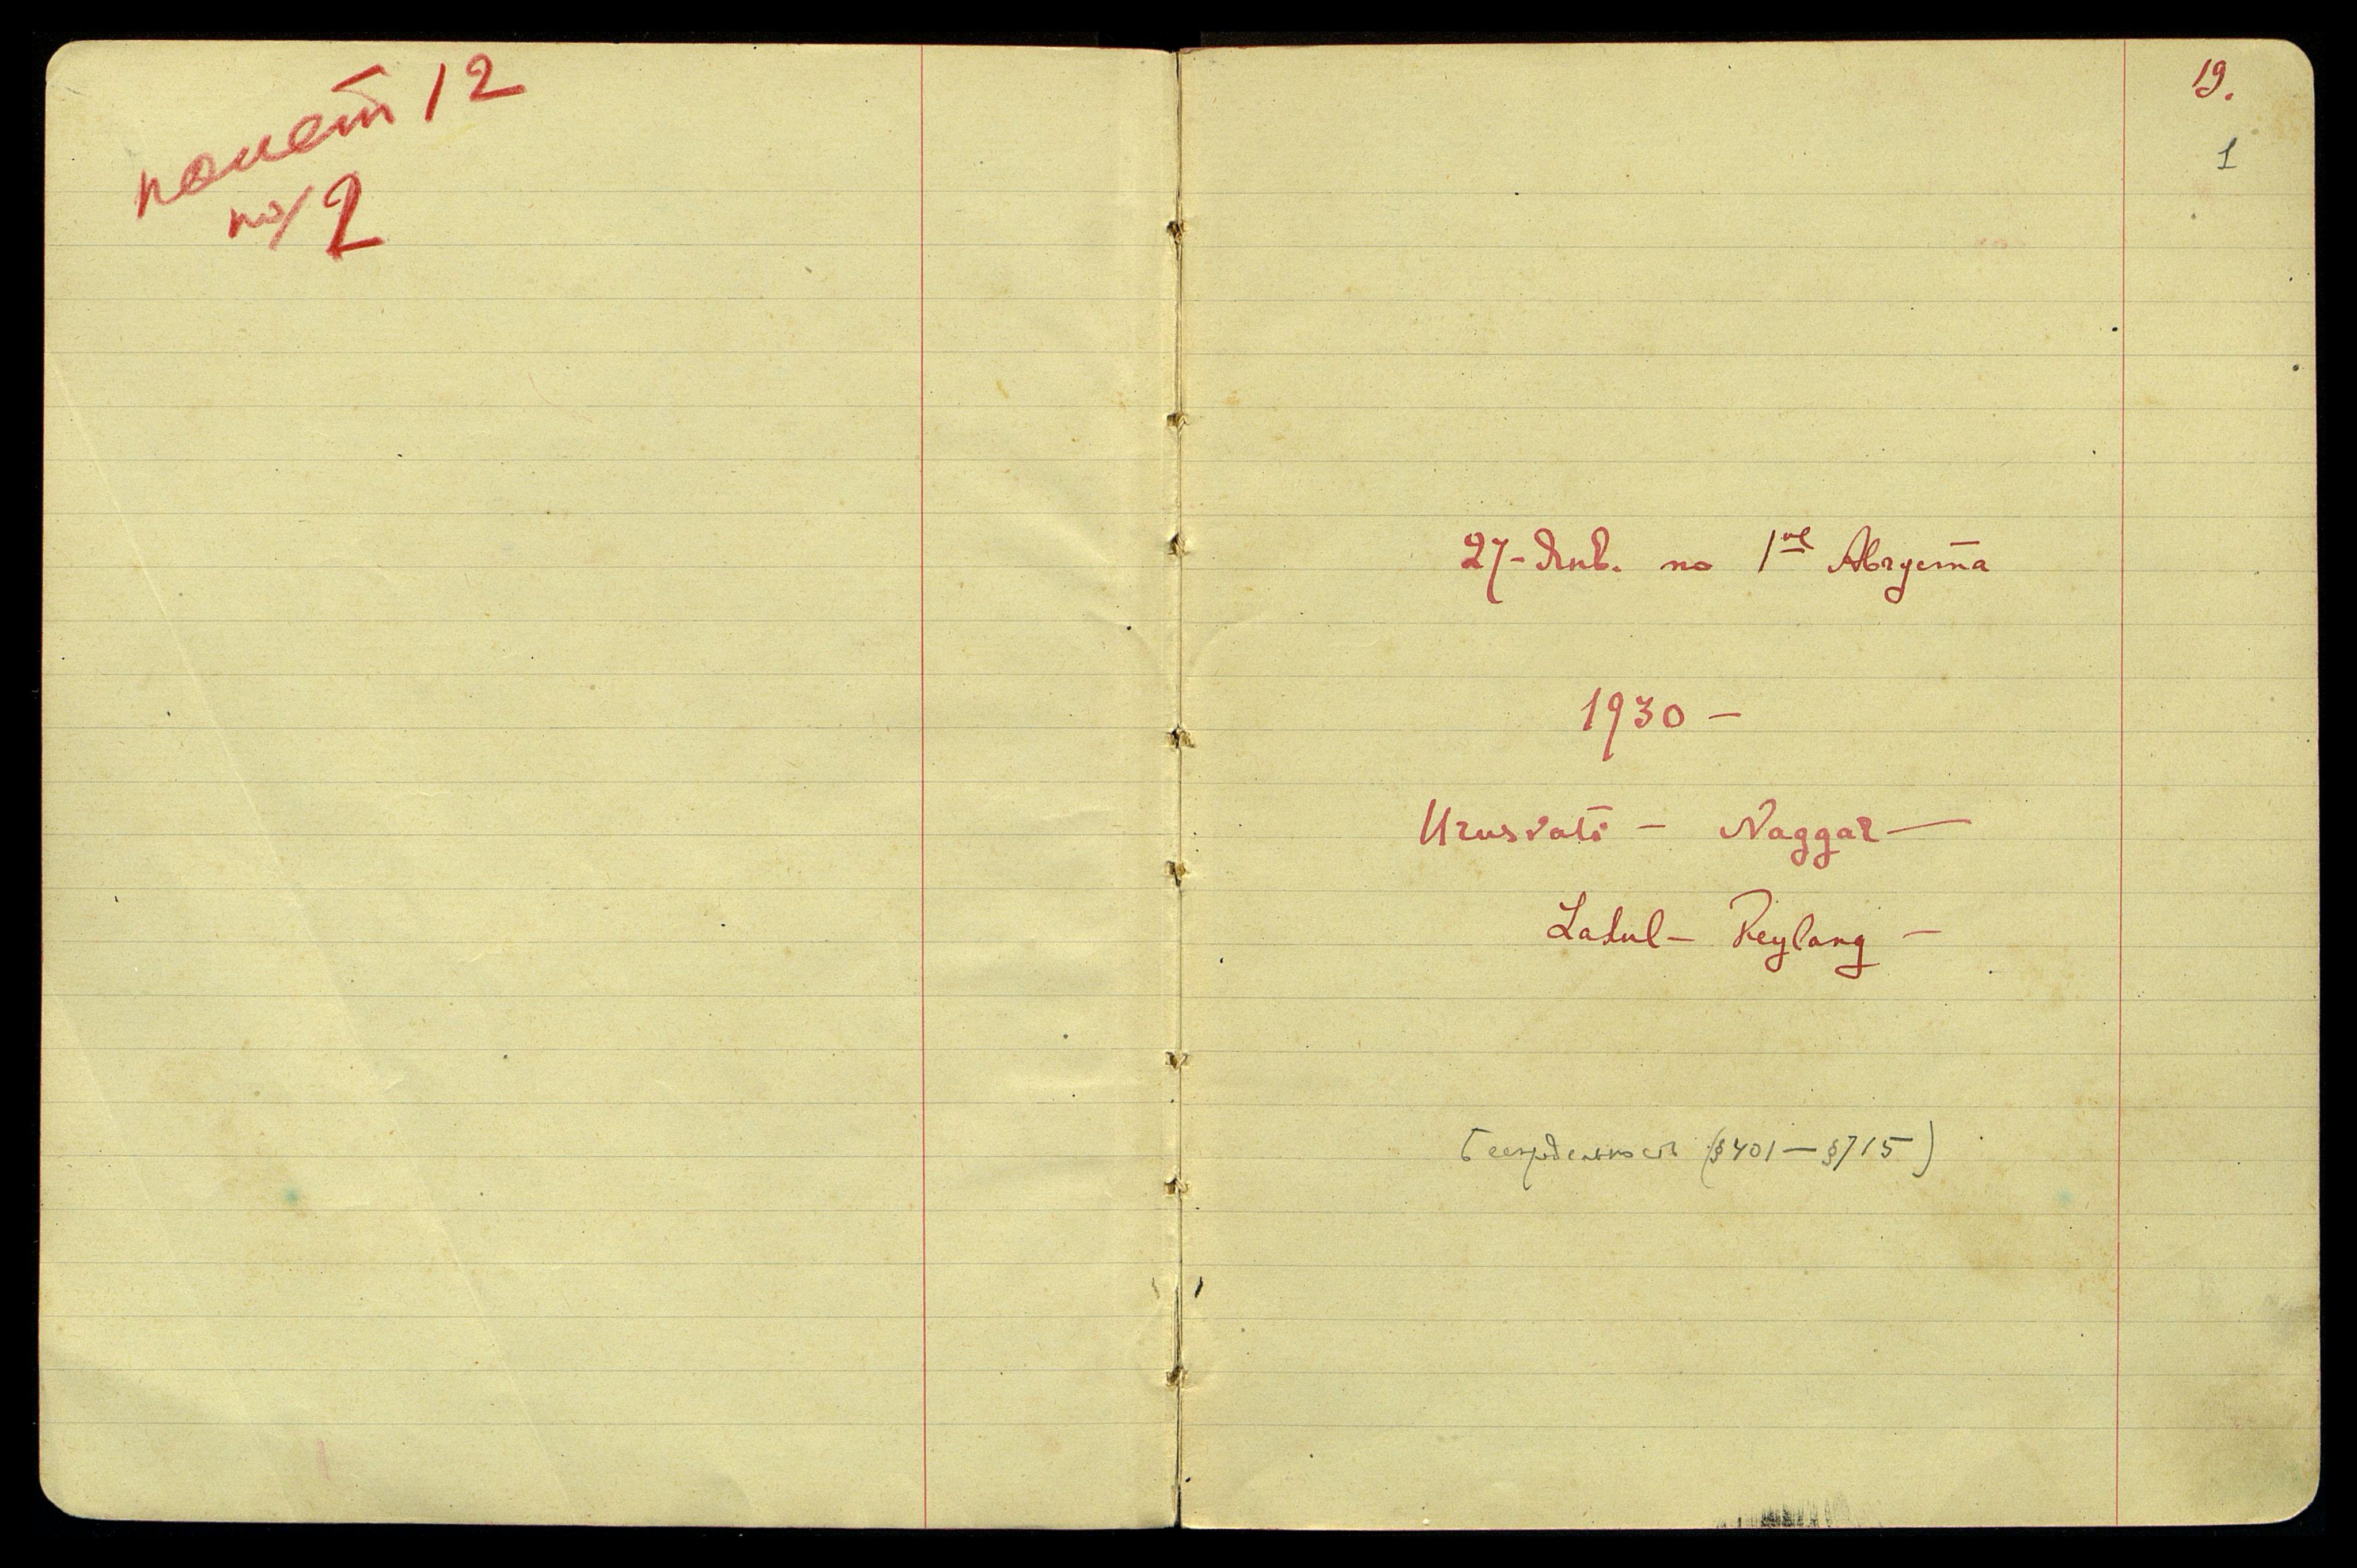 пакет 12
№ 2
19.
1
27-Янв. по 1ое Августа
1930 –
Urusvati – Naggar –
Lahul – Keylang –
Беспредельность (§401 – §715)